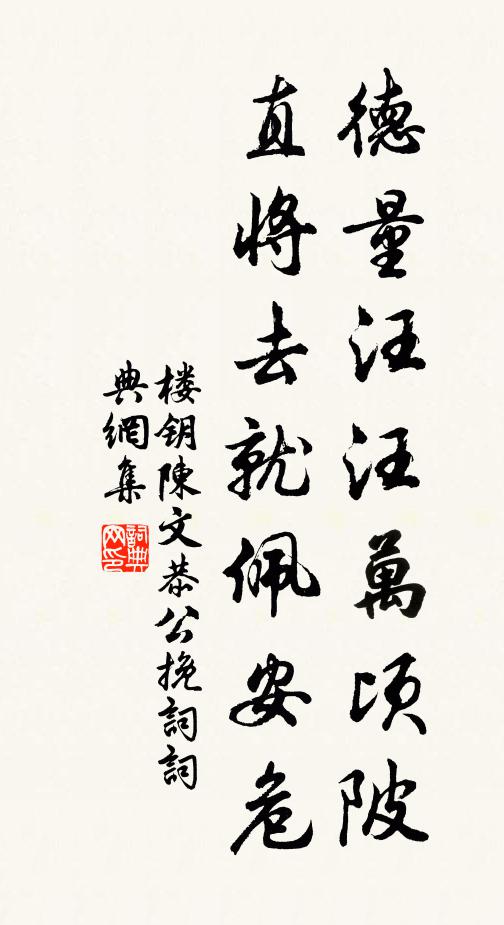 德量汪汪萬頃陂
直將去就佩安危
楼鑰陳文恭公挽詞詞
典網集
詞典
网印